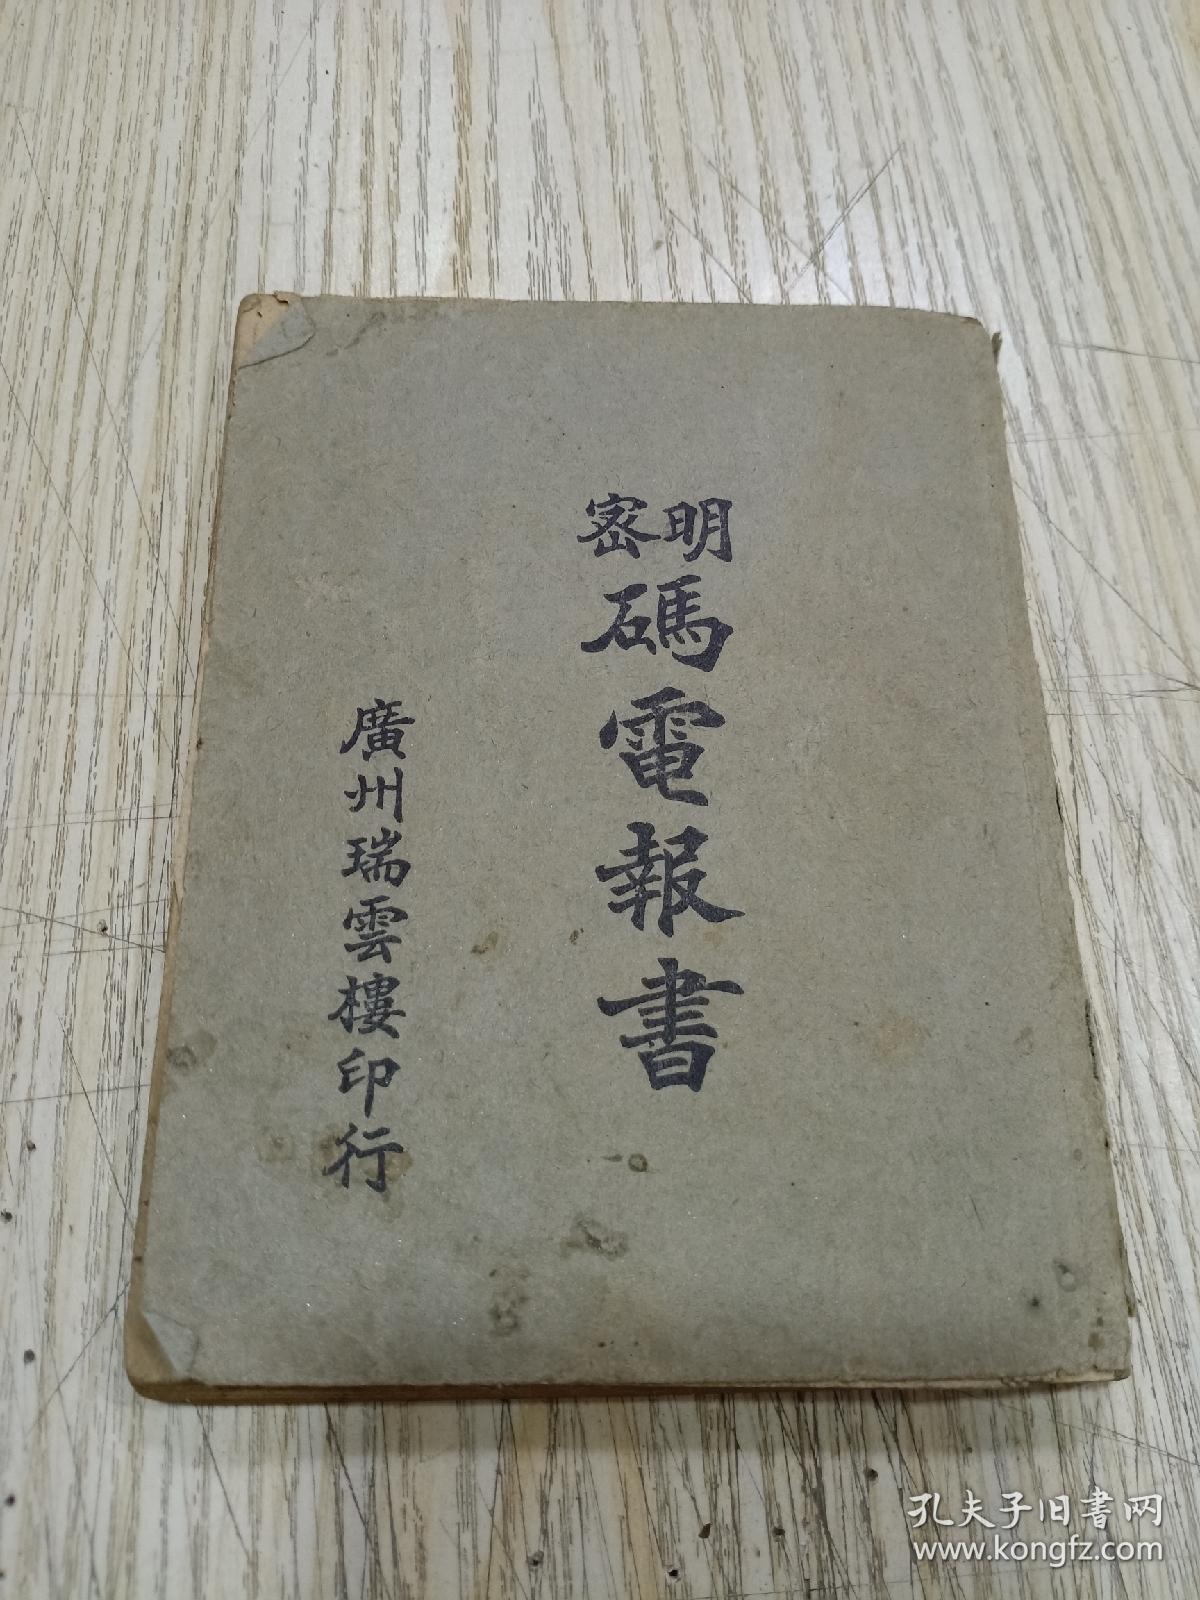 明密
碼電報書
廣州瑞雲樓印行
孔夫子旧書网
www.kongfz.com